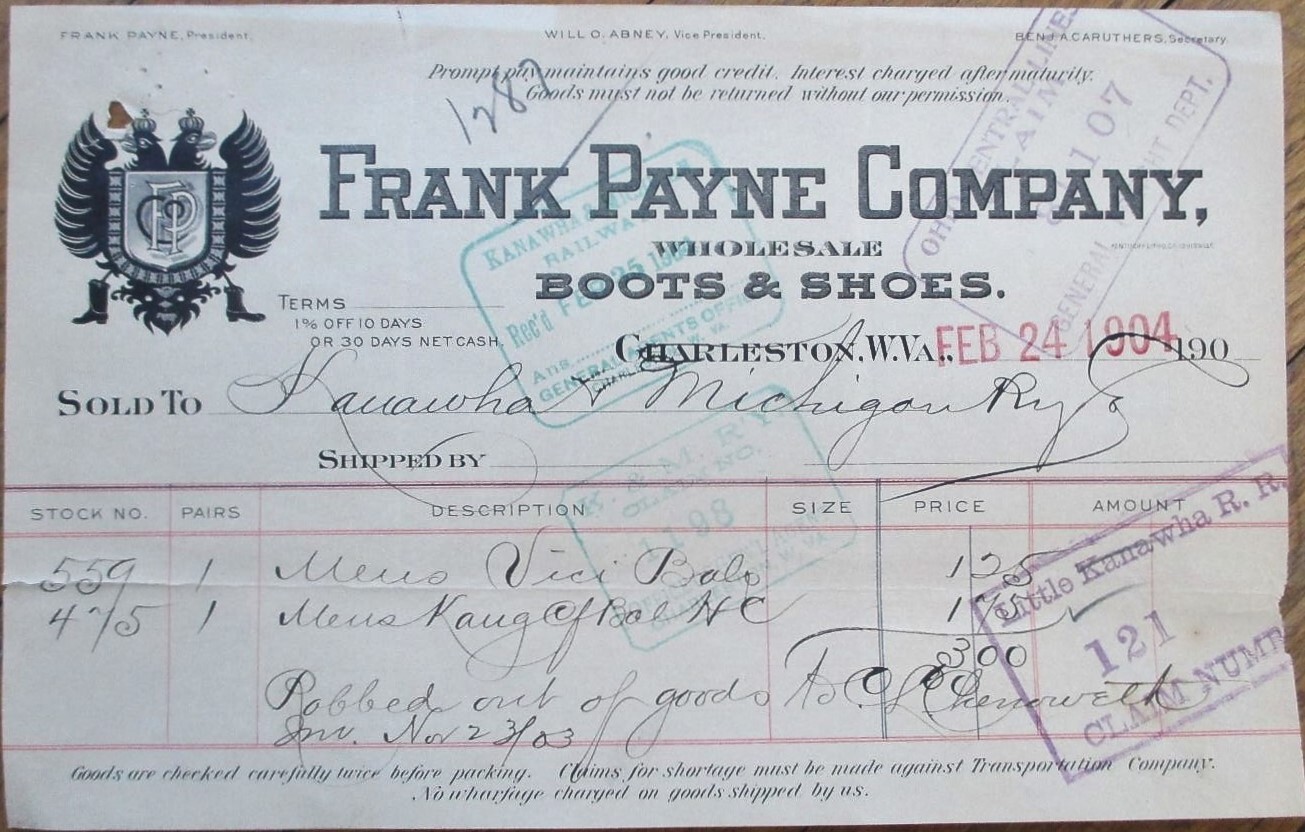 FRANK PAYNE, President. WILL O. ABNEY, Vice President. BENJ. A. CARUTHERS, Secretary.
Prompt pay maintains good credit. Interest charged after maturity.
Goods must not be returned without our permission.
128
FRANK PAYNE COMPANY,
WHOLESALE
BOOTS & SHOES.
TERMS
1% OFF 10 DAYS
OR 30 DAYS NET CASH.
KANAWHA &
RAILWAY
Rec'd FEB 25 1904
Ans.
GENERAL AGENTS OFFICE
OHIO CENTRAL LINES
CLAIM
1107
GENERAL FREIGHT DEPT.
CHARLESTON, W. VA., FEB 24 1904 190
SOLD TO Kanawha & Michigan Ry Co
SHIPPED BY
K. & M. R'Y.
CLAIM NO.
1198
STOCK NO. PAIRS DESCRIPTION SIZE PRICE AMOUNT
559 1 Mens Vici Bals 1 25
475 1 Mens Kang Cf Bal HC 1 75
3 00
Robbed out of goods to C L Chenoweth
Inv. Nov 23/03
Little Kanawha R. R.
121
CLAIM NUMB
Goods are checked carefully twice before packing. Claims for shortage must be made against Transportation Company.
No wharfage charged on goods shipped by us.